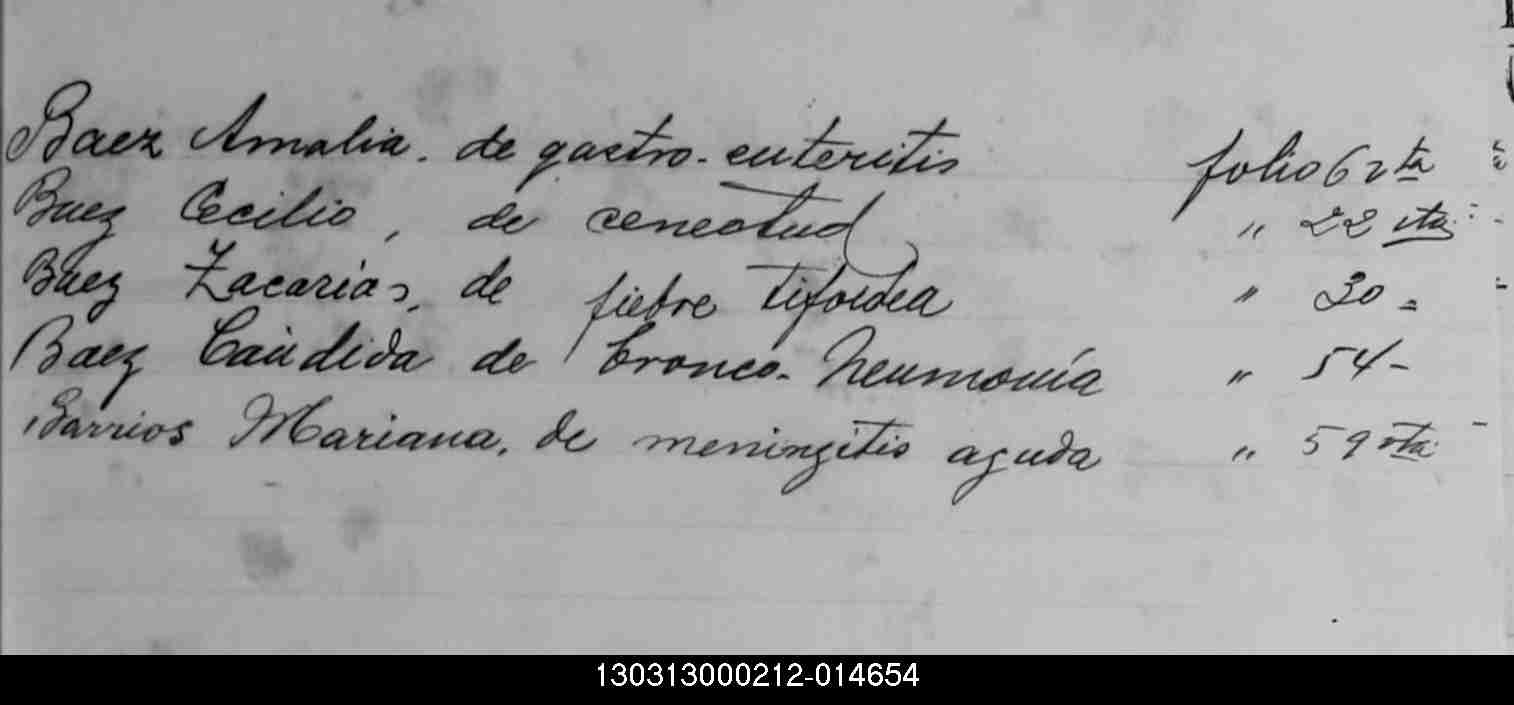 Baez Amalia. de gastro-enteritis folio 6 vta
Baez Cecilio, de cenectud " 22 vta
Baez Zacarías, de fiebre tifoidea " 30 -
Baez Cándida de bronco-neumonía " 54 -
Barrios Mariana, de meningitis aguda " 59 vta
130313000212-014654